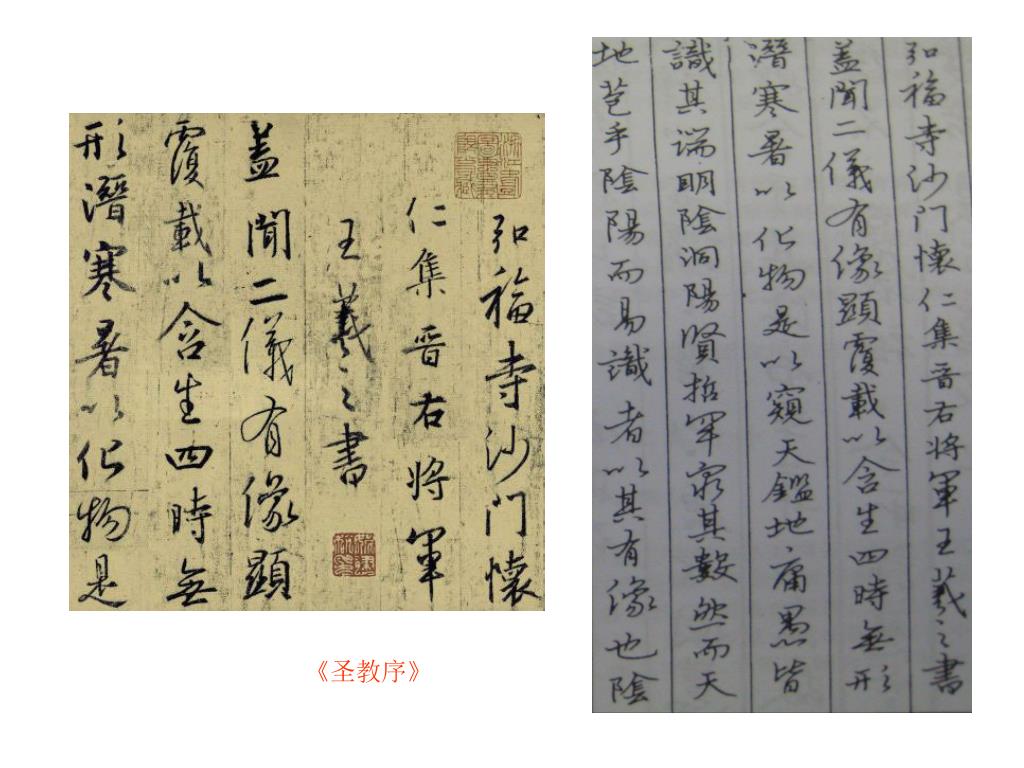 弘福寺沙门懷
仁集晉右将軍
王羲之書
盖聞二儀有像顯
覆載以含生四時無
形潛寒暑以化物是
《圣教序》
弘福寺沙门懷仁集晉右将軍王羲之書
盖聞二儀有像顯覆載以含生四時無形
潛寒暑以化物是以窺天鑑地庸愚皆
識其端明陰洞陽賢哲罕窮其數然而天
地苞乎陰陽而易識者以其有像也陰